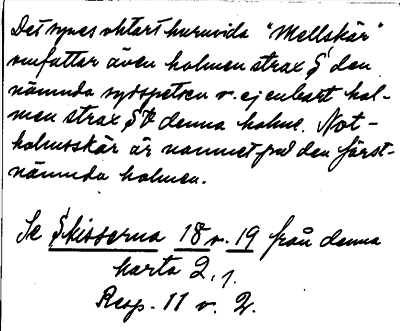 Det synes oklart huruvida "Mellskär"
omfattar även holmen strax S den
nämnda sydspetsen o. ej enbart hol-
men strax S denna holme. Not-
holmsskär är namnet på den först-
nämnda holmen.
Se Skisserna 18 o. 19 från denna
karta 2.1.
Resp. 11 o. 2.